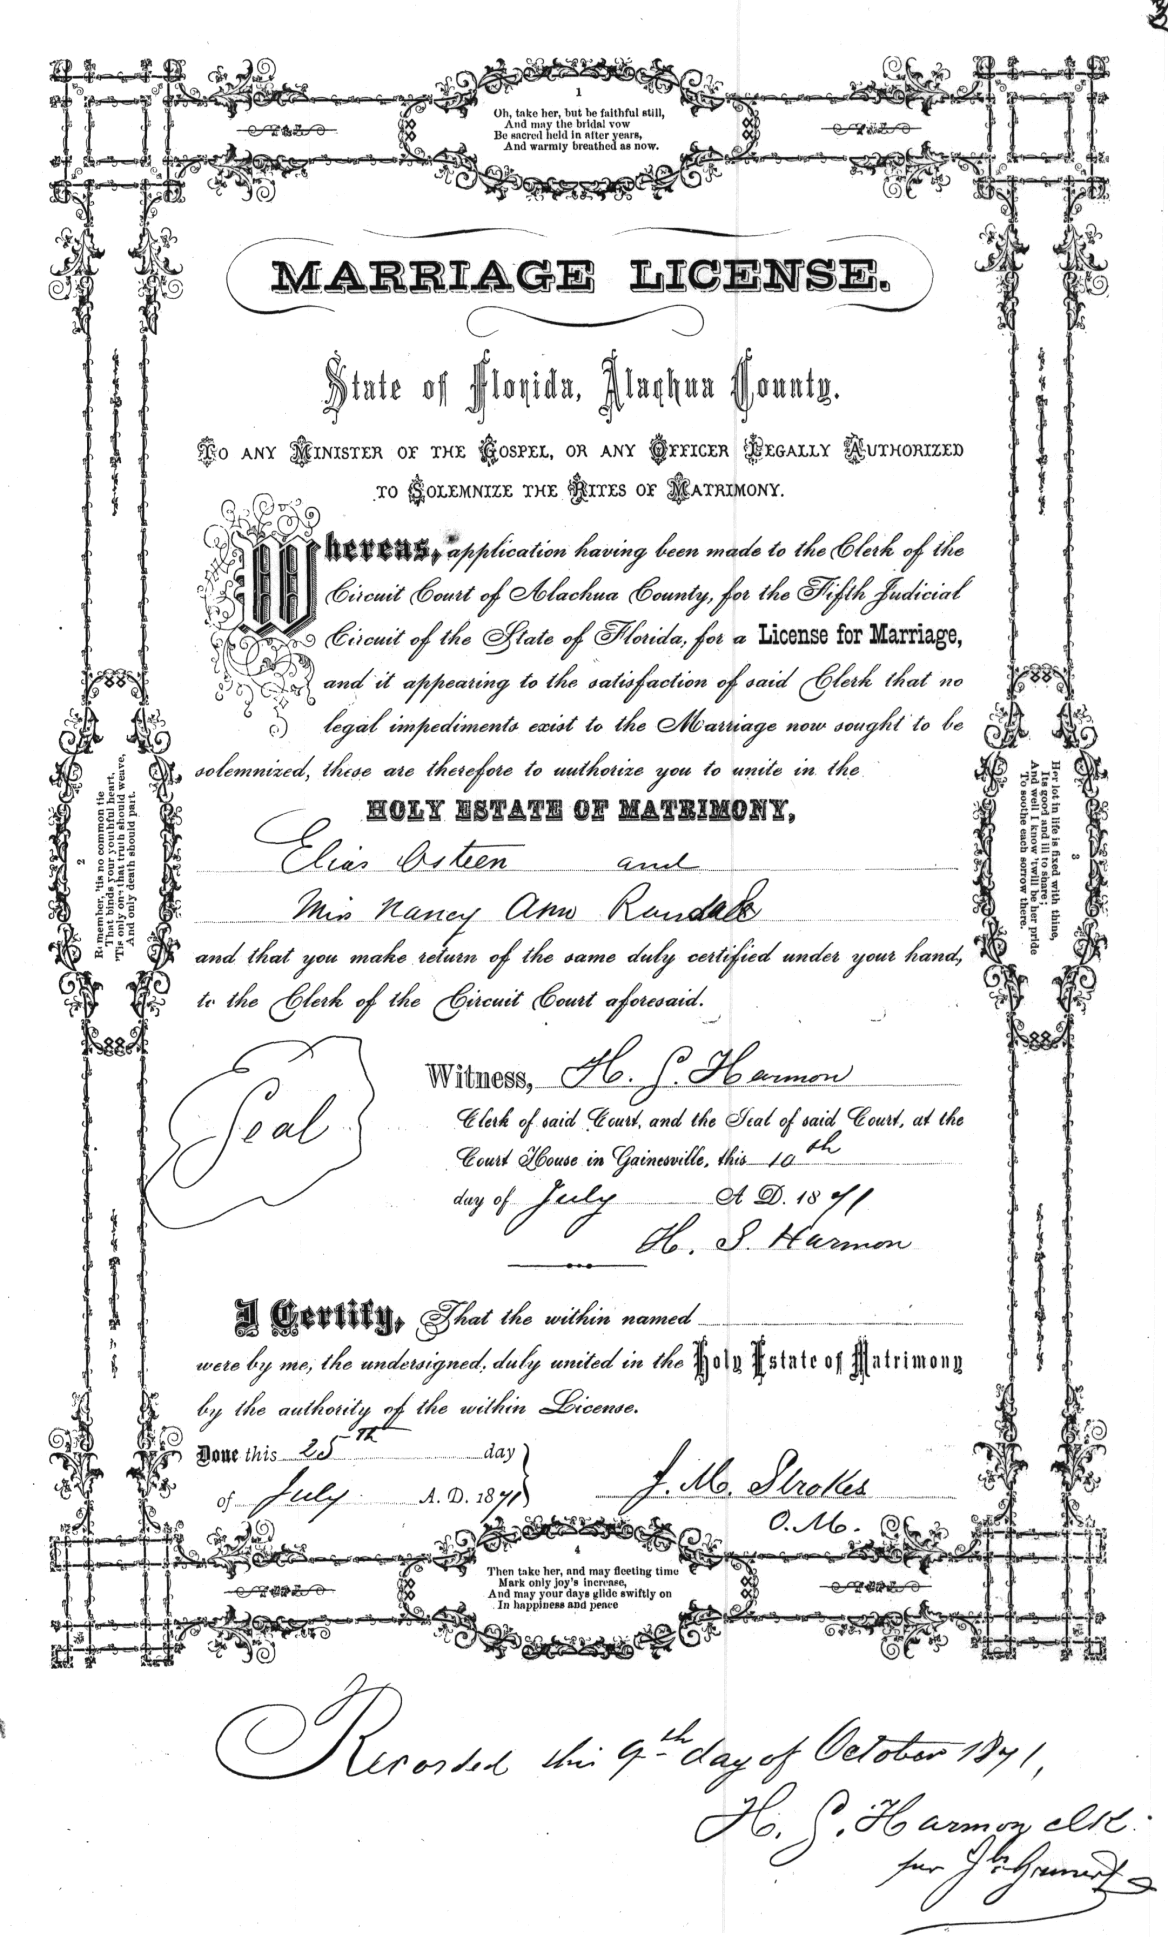 1
Oh, take her, but be faithful still,
And may the bridal vow
Be sacred held in after years,
And warmly breathed as now.
MARRIAGE LICENSE.
State of Florida, Alachua County.
TO ANY MINISTER OF THE GOSPEL, OR ANY OFFICER LEGALLY AUTHORIZED
TO SOLEMNIZE THE RITES OF MATRIMONY.
Whereas, application having been made to the Clerk of the
Circuit Court of Alachua County, for the Fifth Judicial
Circuit of the State of Florida, for a License for Marriage,
and it appearing to the satisfaction of said Clerk that no
legal impediments exist to the Marriage now sought to be
solemnized, these are therefore to authorize you to unite in the
HOLY ESTATE OF MATRIMONY,
Elias Osteen and
Miss Nancy Ann
and that you make return of the same duly certified under your hand,
to the Clerk of the Circuit Court aforesaid.
2
Remember, 'tis no common tie
That binds your youthful heart,
'Tis only one that truth should weave,
And only death should part.
3
Her lot in life is fixed with thine,
Its good and ill to share;
And well I know 'twill be her pride
To soothe each sorrow there.
Seal
Witness, H. S. Harmon
Clerk of said Court, and the Seal of said Court, at the
Court House in Gainesville, this 10th
day of July A. D. 1871
H. S. Harmon
I Certify, That the within named
were by me, the undersigned, duly united in the Holy Estate of Matrimony
by the authority of the within License.
Done this 25th day
of July A. D. 1871
J. M. Strokes
O. M.
4
Then take her, and may fleeting time
Mark only joy's increase,
And may your days glide swiftly on
In happiness and peace
Recorded this 9th day of October 1871,
H. S. Harmon clk.
per